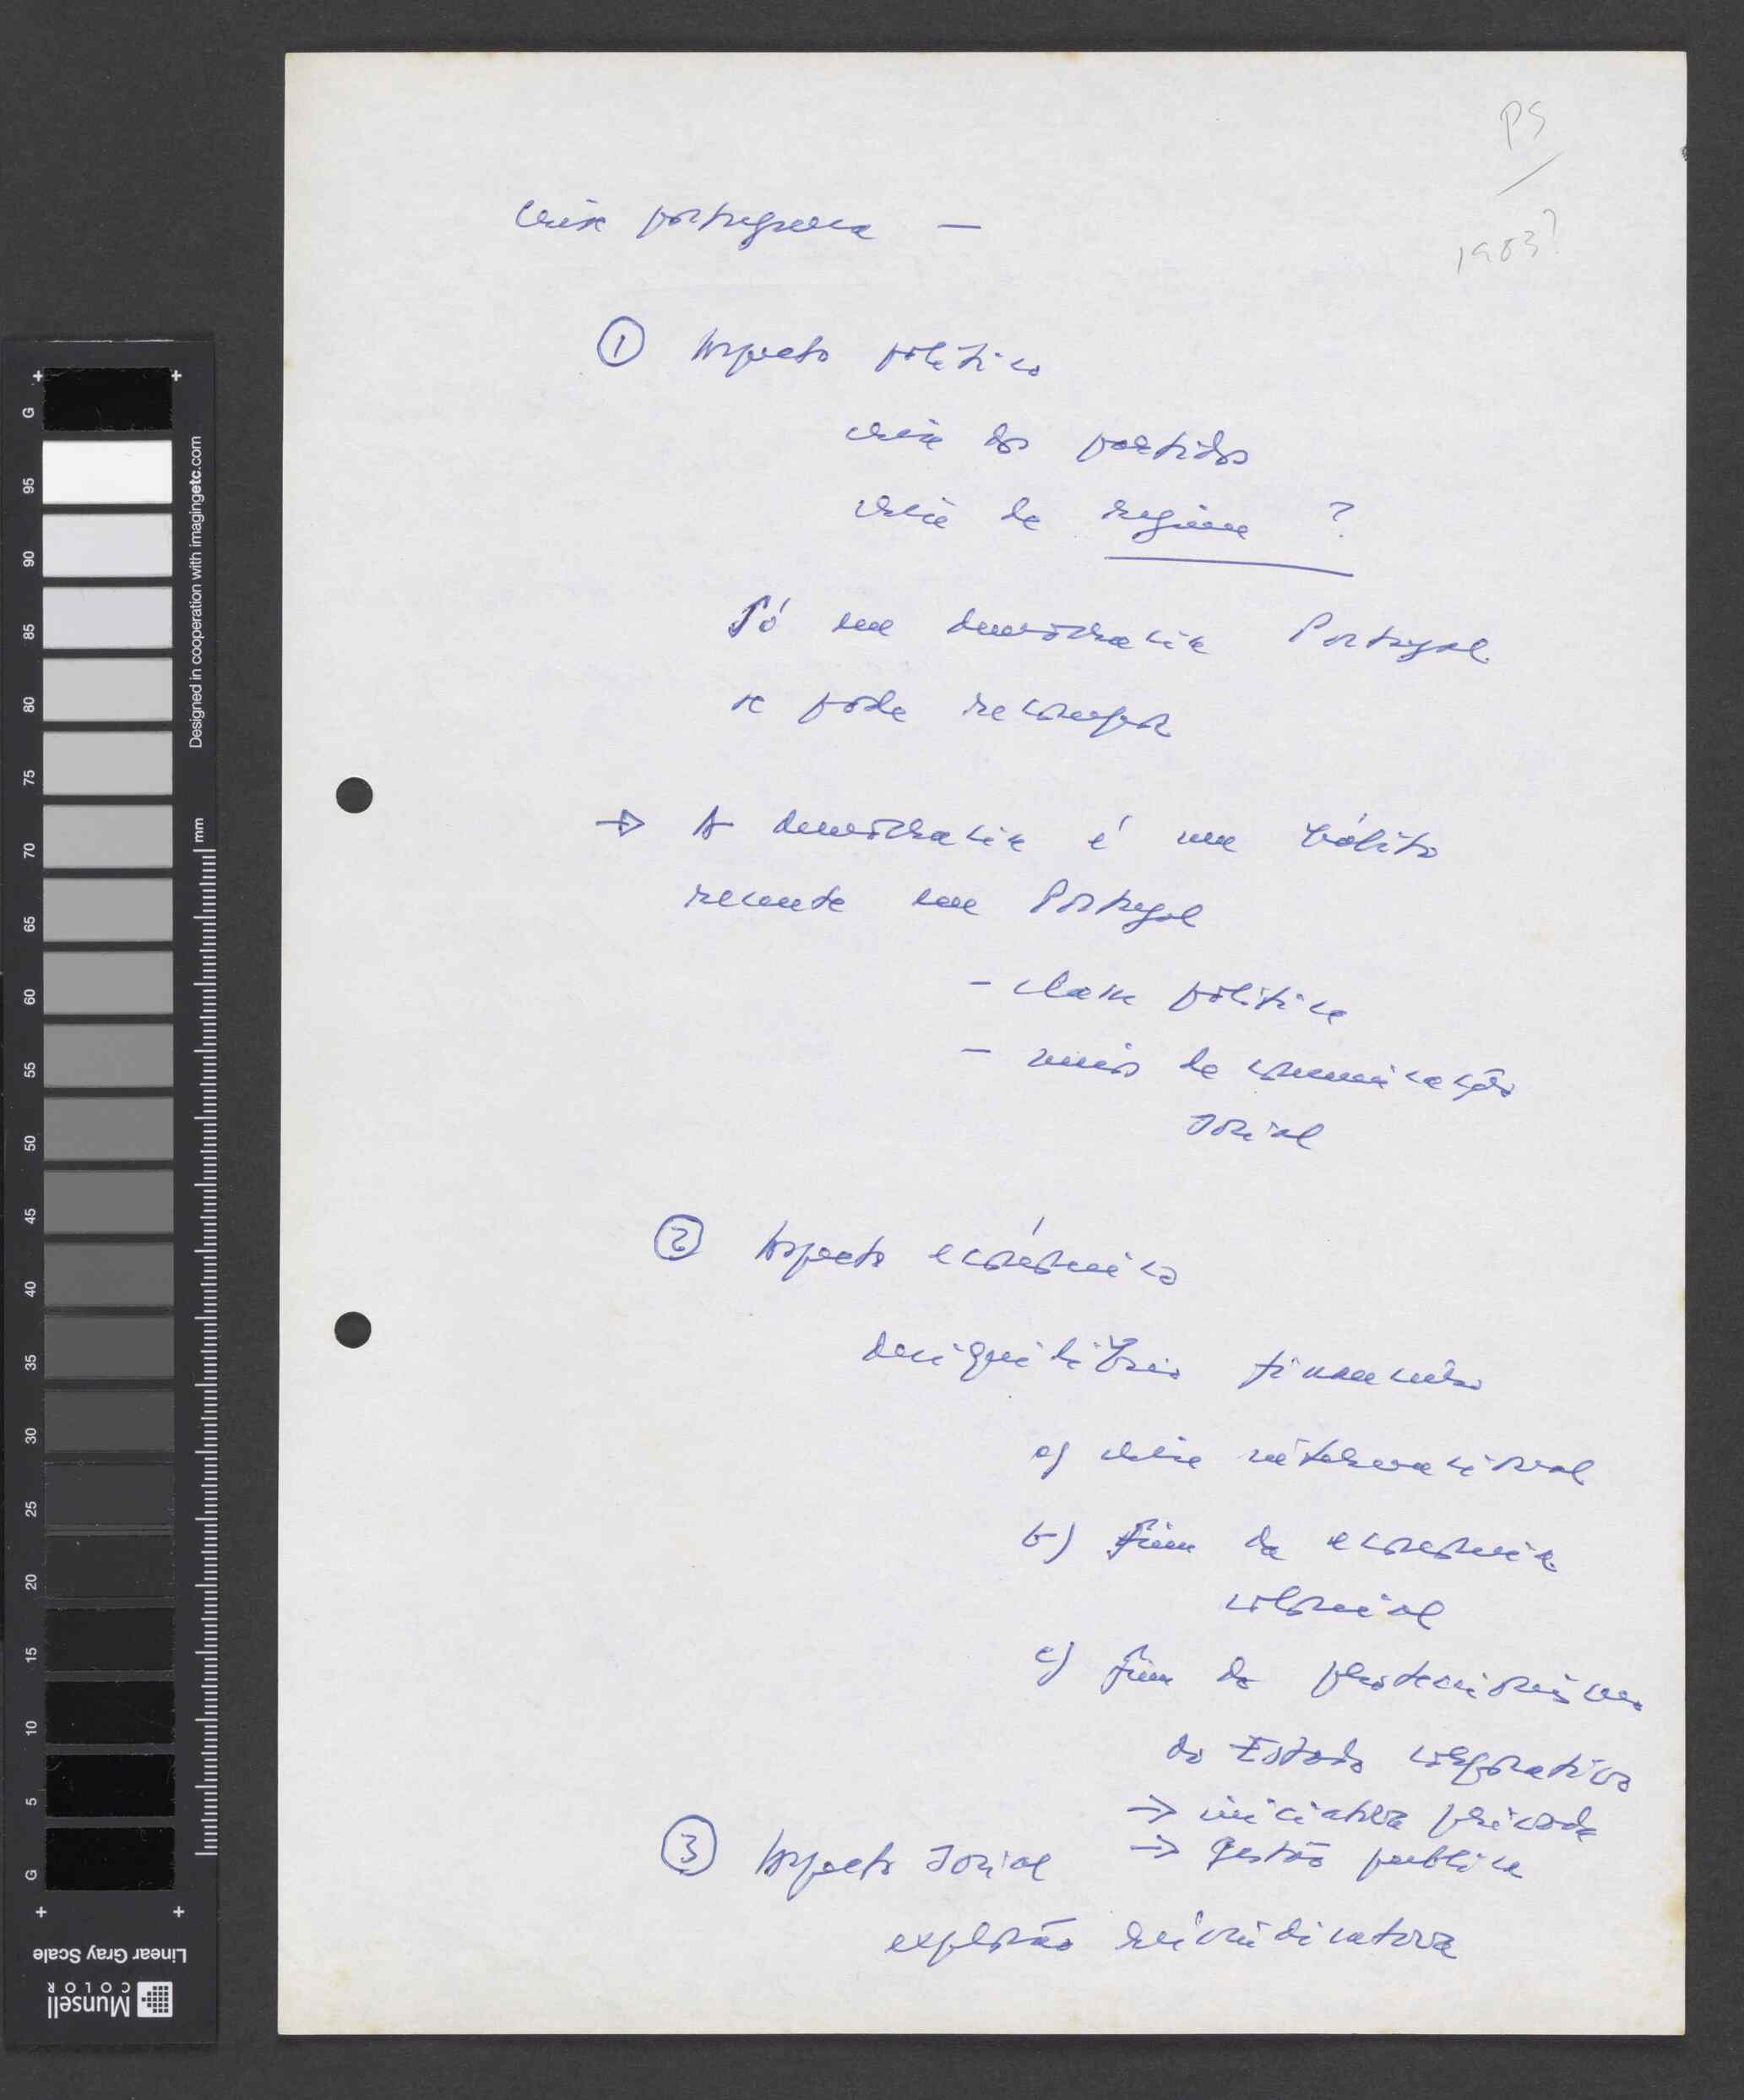 PS
1983?
Crise portuguesa —
① Aspecto político
crise dos partidos
crise de regime ?
Só em democracia Portugal
se pode recompor
→ A democracia é um hábito
recente em Portugal
- classe política
- meios de comunicação
social
② Aspecto económico
desiquilíbrio financeiro
a) crise internacional
b) fim da economia
colonial
c) fim do proteccionismo
do Estado corporativo
→ iniciativa privada
→ gestão publica
③ Aspecto social
explosão reivindicativa
G
95
90
85
80
75
70
65
60
55
50
45
40
35
30
25
20
15
10
5
G
Designed in cooperation with imagingetc.com
mm
Linear Gray Scale
Munsell
COLOR